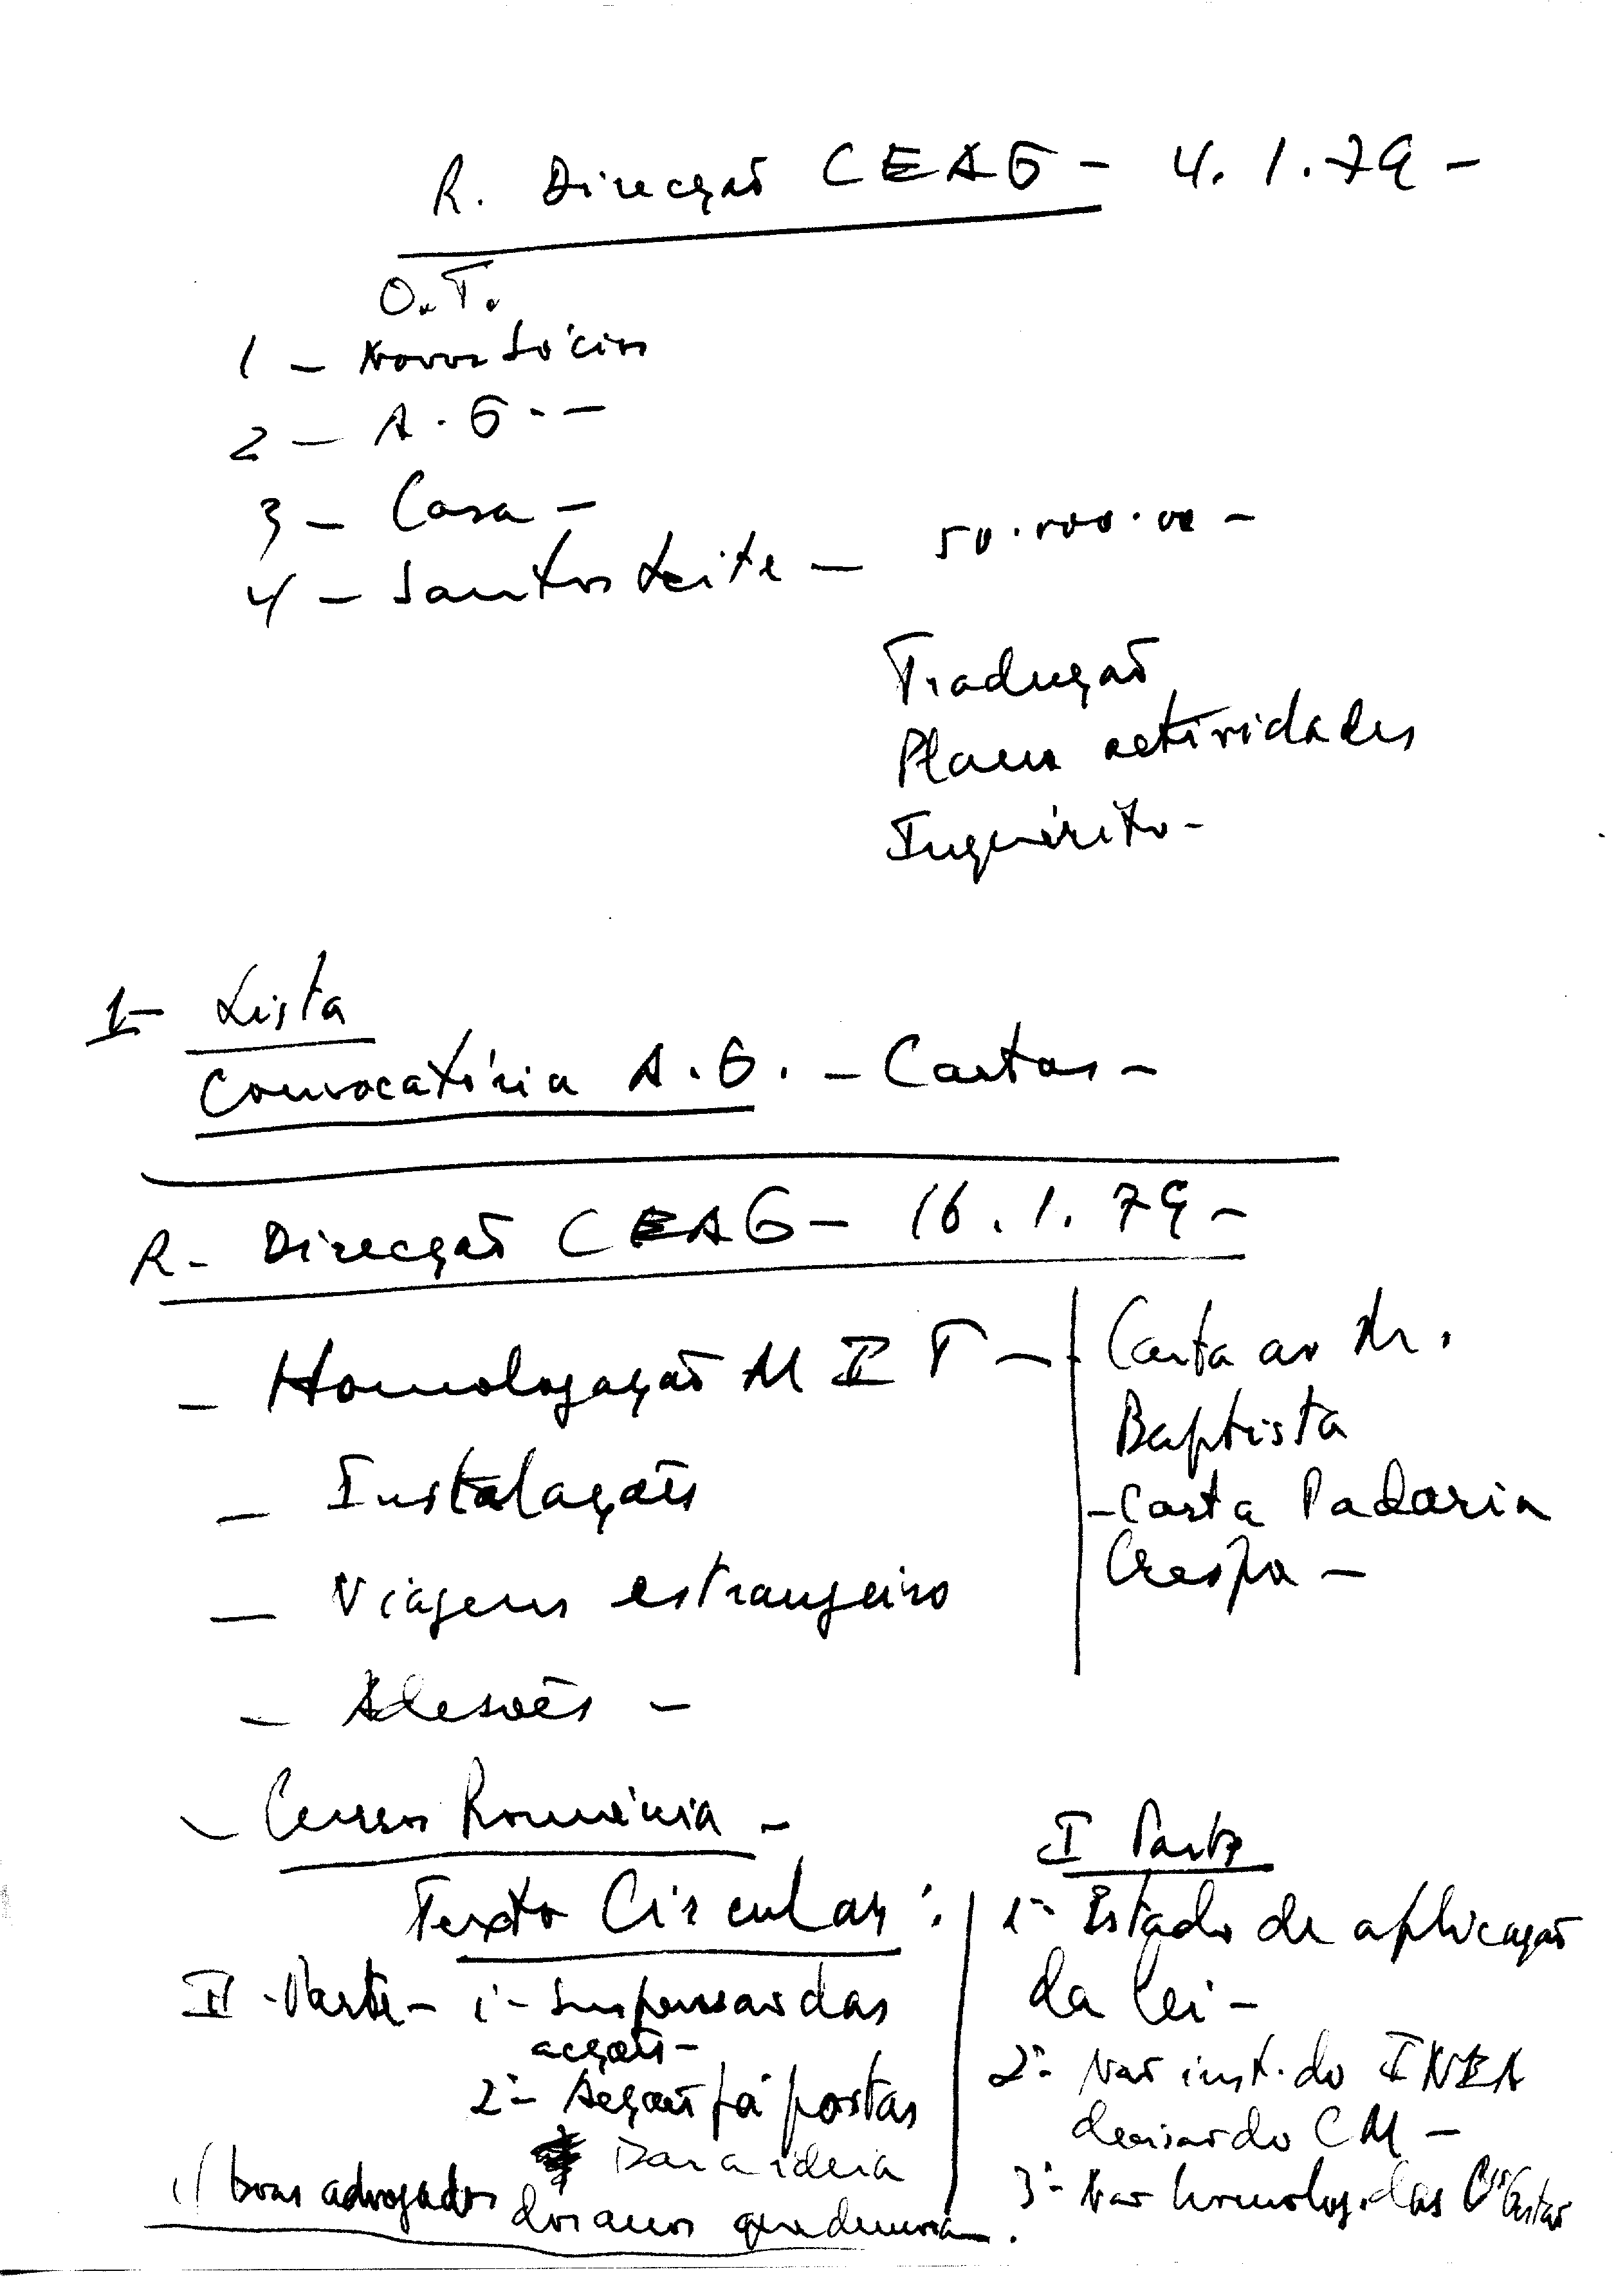 R. Direcção CEAG - 4.1.79 -
O.T.
1 - Novos Sócios
2 - A.G. -
3 - Casa -
4 - Santos Leite - 50.000.00 -
Tradução
Plano actividades
Inquérito -
1 - Lista
Convocatória A.G. - Cartas -
R. Direcção CEAG - 16.1.79 -
- Homologação M I T -
- Instalações
- Viagens estrangeiro
- Adesões -
- Curso Roménia -
- Carta ao Dr.
Baptista
- Carta Padaria
Crespa -
Texto Circular :
I Parte
1º- Estado de aplicação
da lei -
2º- Não inst. do INEA
decisão do CM -
3º- Não homolog. das
II - Parte - 1º - Suspensão das
acções -
2º - Acções já postas
Dar a ideia
dos anos que demora.
c/ bons advogados